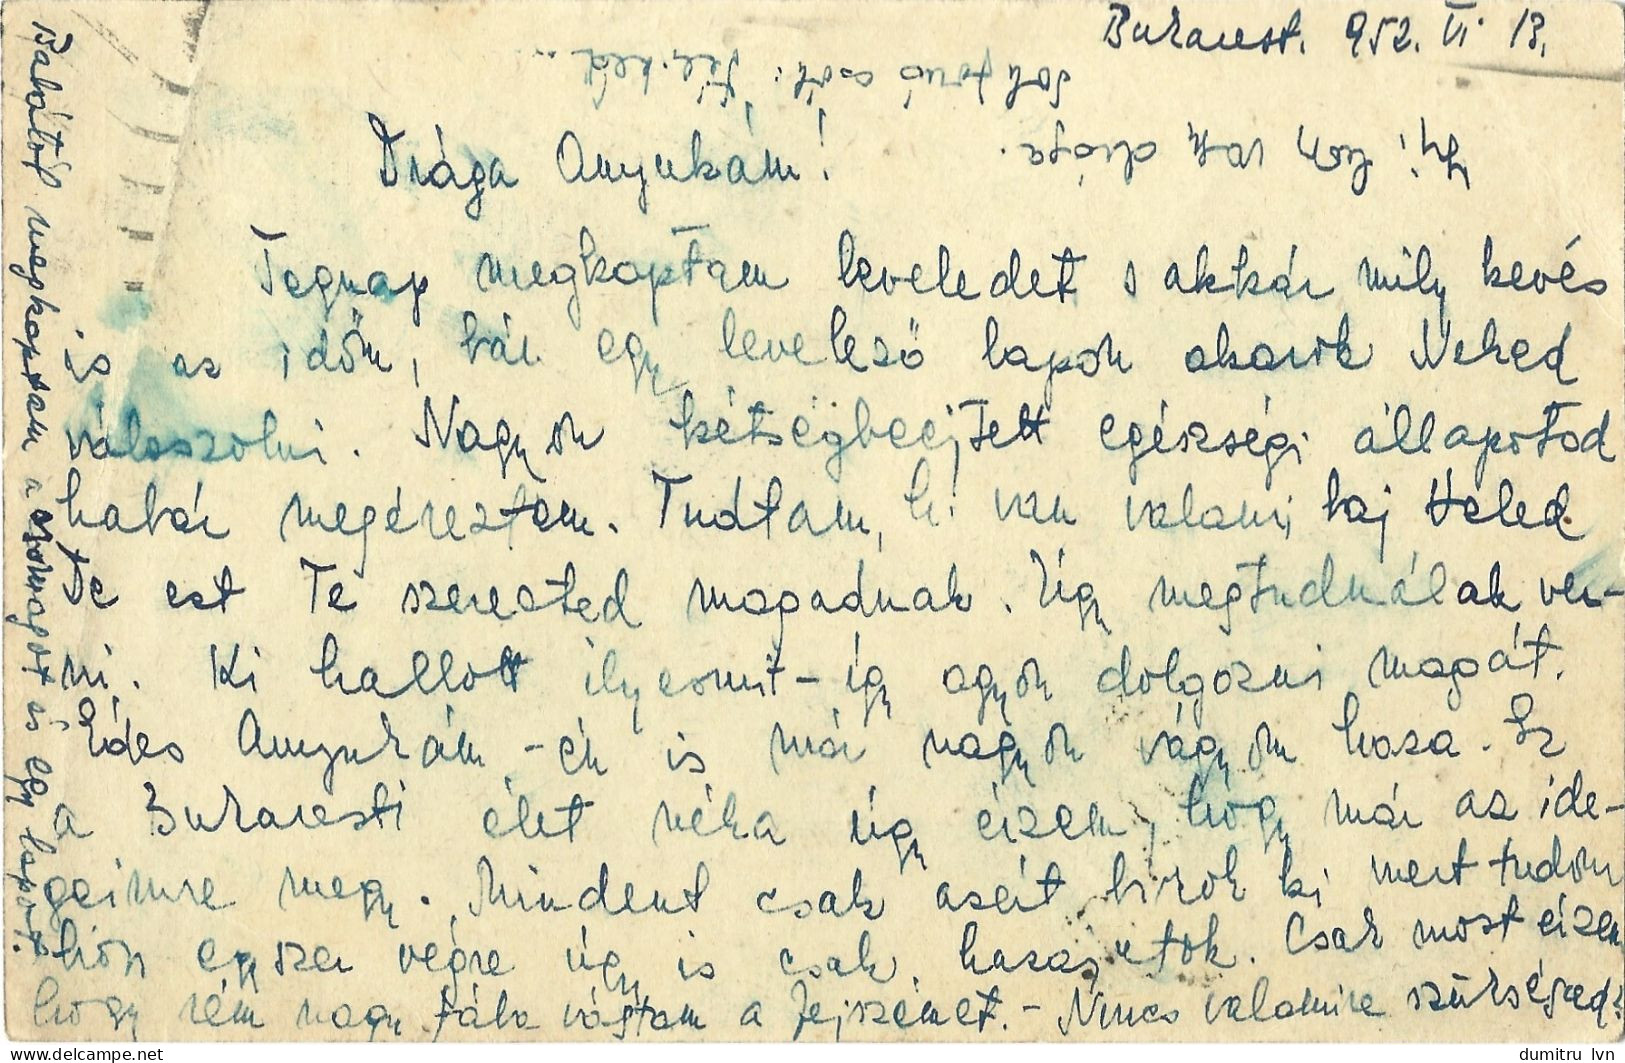 Bukarest. 952. VI. 13.
Drága Anyukám!
Tegnap megkaptam leveledet s akkár mily kevés
is az időm, bár egy levelező lapon akarok Neked
válaszolni. Nagyon kétségbeejtett egészségi állapotod
habár megéreztem. Tudtam, h. van valami baj Veled.
De ezt Te szerezted magadnak. Úgy megtudnálak ver-
ni. Ki hallott ilyesmit - így agyon dolgozni magát.
Édes Anyukám, - én is már nagyon vágyom haza. Ez
a Bukaresti élet néha úgy érzem, hogy már az ide-
geimre megy. Mindent csak azért birok ki mert tudom
hogy egyszer végre úgy is csak hazajutok. Csak most érzem
hogy rém nagy fába vágtam a fejszémet. - Nincs valamire szükséged?
Babától megkaptam a csomagot is egy lapot.
sok csók: